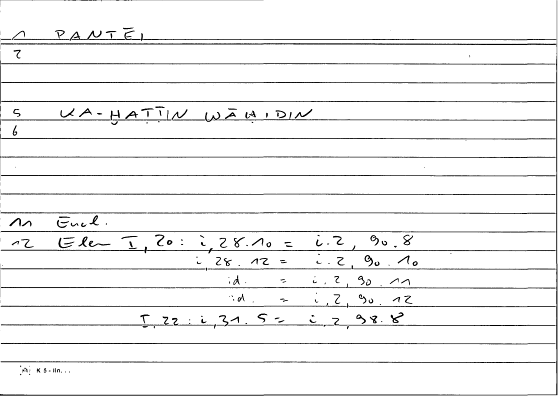 1 PANTĒI
2
5 KA-ḪAṬṬIN WĀḤIDIN
6
11 Eucl.
12 Elem I, 20 : i, 28.10 = i.2, 90.8
i, 28.12 = i.2, 90.10
id. = i.2, 90.11
id. = i,2, 90.12
I, 22 : i, 31.5 = i.2, 98.8